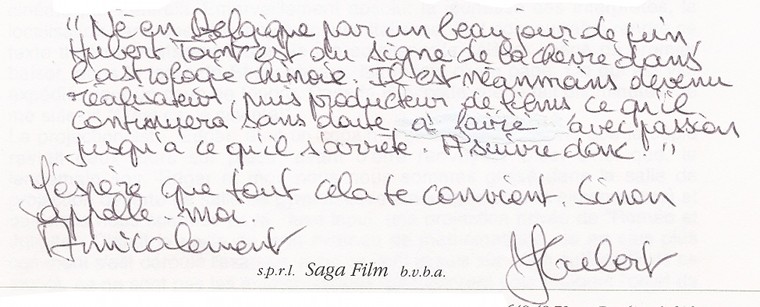 "Né en Belgique par un beau jour de juin,
Hubert Toint est du signe de la chèvre dans
l'astrologie chinoise. Il est néanmoins devenu
réalisateur, puis producteur de films ce qu'il
continuera sans doute à faire avec passion
jusqu'à ce qu'il s'arrête. A suivre donc!"
J'espère que tout cela te convient. Sinon
appelle-moi.
Amicalement
Hubert
s.p.r.l. Saga Film b.v.b.a.